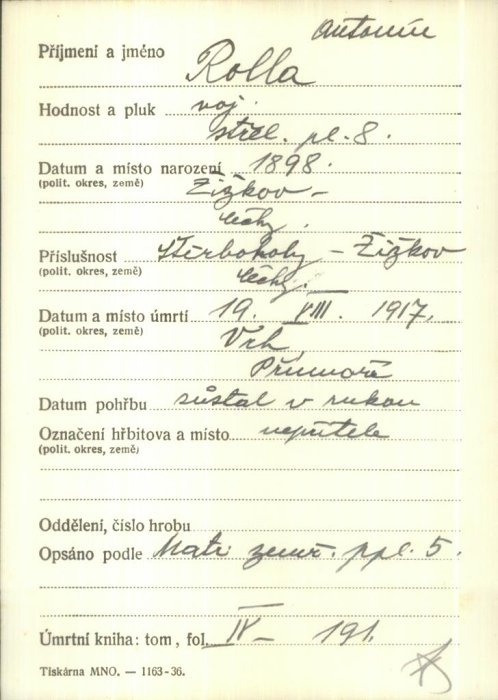 Antonín
Příjmení a jméno Rolla
Hodnost a pluk voj.
střel. pl. 8.
Datum a místo narození 1898.
(polit. okres, země) Žižkov –
Čechy.
Příslušnost Štěrboholy – Žižkov
(polit. okres, země) Čechy.
Datum a místo úmrtí 19. VIII. 1917.
(polit. okres, země) Vrh
Přímoří
Datum pohřbu zůstal v rukou
Označení hřbitova a místo nepřítele
(polit. okres, země)
Oddělení, číslo hrobu
Opsáno podle Matr. zemř. ppl. 5.
Úmrtní kniha: tom, fol. IV – 191.
Tiskárna MNO. — 1163-36.